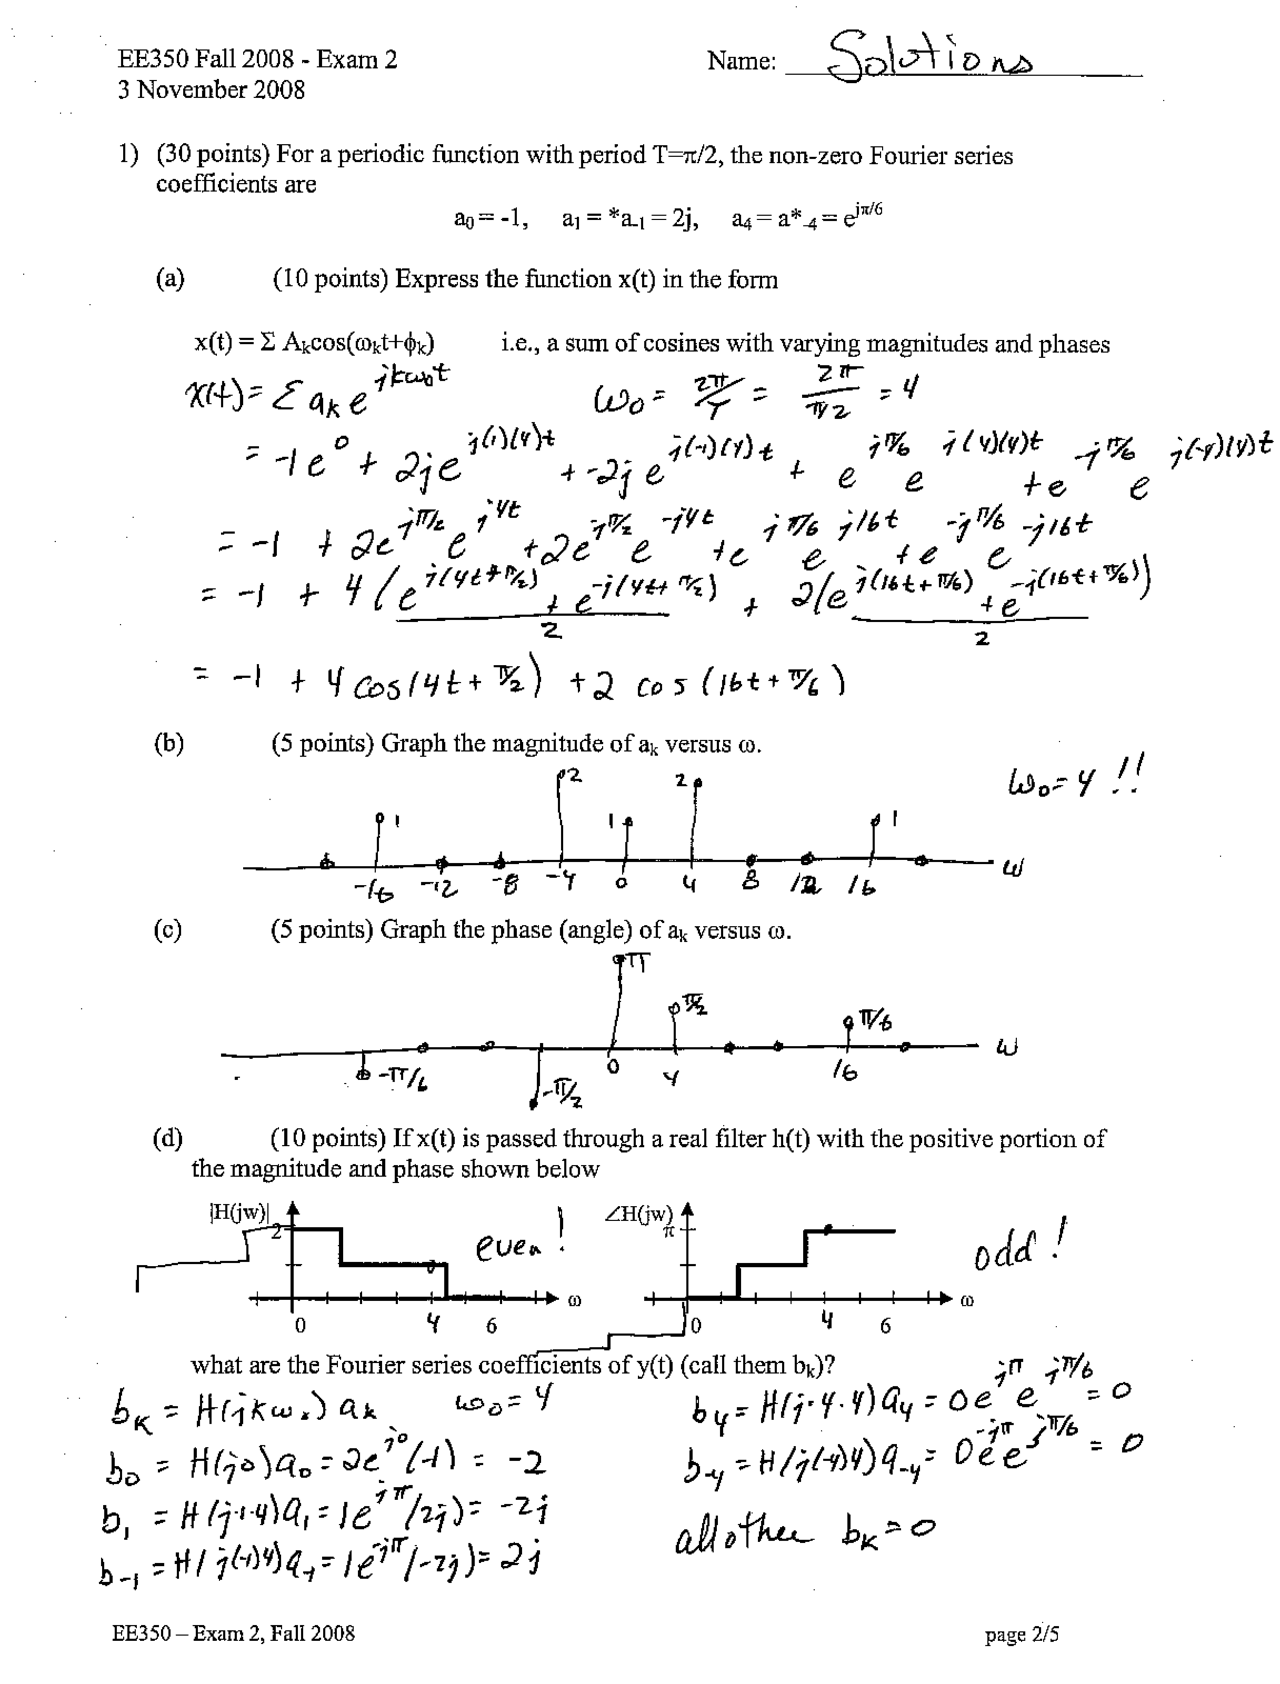 EE350 Fall 2008 - Exam 2 Name: Solutions
3 November 2008
1) (30 points) For a periodic function with period T=π/2, the non-zero Fourier series
coefficients are
a₀ = -1, a₁ = *a₋₁ = 2j, a₄ = a*₋₄ = e^{jπ/6}
(a) (10 points) Express the function x(t) in the form
x(t) = Σ Aₖcos(ωₖt+ϕₖ) i.e., a sum of cosines with varying magnitudes and phases
x(t) = Σ aₖ e^{jkω₀t} ω₀ = 2π/T = 2π/(π/2) = 4
= -1e^0 + 2je^{j(1)(4)t} + -2je^{j(-1)(4)t} + e^{jπ/6} e^{j(4)(4)t} + e^{-jπ/6} e^{j(-4)(4)t}
= -1 + 2e^{jπ/2} e^{j4t} + 2e^{-jπ/2} e^{-j4t} + e^{jπ/6} e^{j16t} + e^{-jπ/6} e^{-j16t}
= -1 + 4(e^{j(4t+π/2)} + e^{-j(4t+π/2)})/2 + 2(e^{j(16t+π/6)} + e^{-j(16t+π/6)})/2
= -1 + 4cos(4t+π/2) + 2 cos(16t+π/6)
(b) (5 points) Graph the magnitude of aₖ versus ω.
ω₀=4 !!
1 2 1 2 1
-16 -12 -8 -4 0 4 8 12 16 ω
(c) (5 points) Graph the phase (angle) of aₖ versus ω.
π
π/2 π/6
ω
-π/6 -π/2 0 4 16
(d) (10 points) If x(t) is passed through a real filter h(t) with the positive portion of
the magnitude and phase shown below
|H(jw)| ∠H(jw)
2 even! π odd!
ω ω
0 4 6 0 4 6
what are the Fourier series coefficients of y(t) (call them bₖ)?
bₖ = H(jkω₀) aₖ ω₀=4
b₀ = H(j0)a₀ = 2e^{j0}(-1) = -2
b₁ = H(j·1·4)a₁ = 1e^{jπ}(2j) = -2j
b₋₁ = H(j(-1)4)a₋₁ = 1e^{-jπ}(-2j) = 2j
b₄ = H(j·4·4)a₄ = 0e^{jπ} e^{jπ/6} = 0
b₋₄ = H(j(-4)4)a₋₄ = 0e^{-jπ} e^{jπ/6} = 0
all other bₖ=0
EE350 – Exam 2, Fall 2008 page 2/5